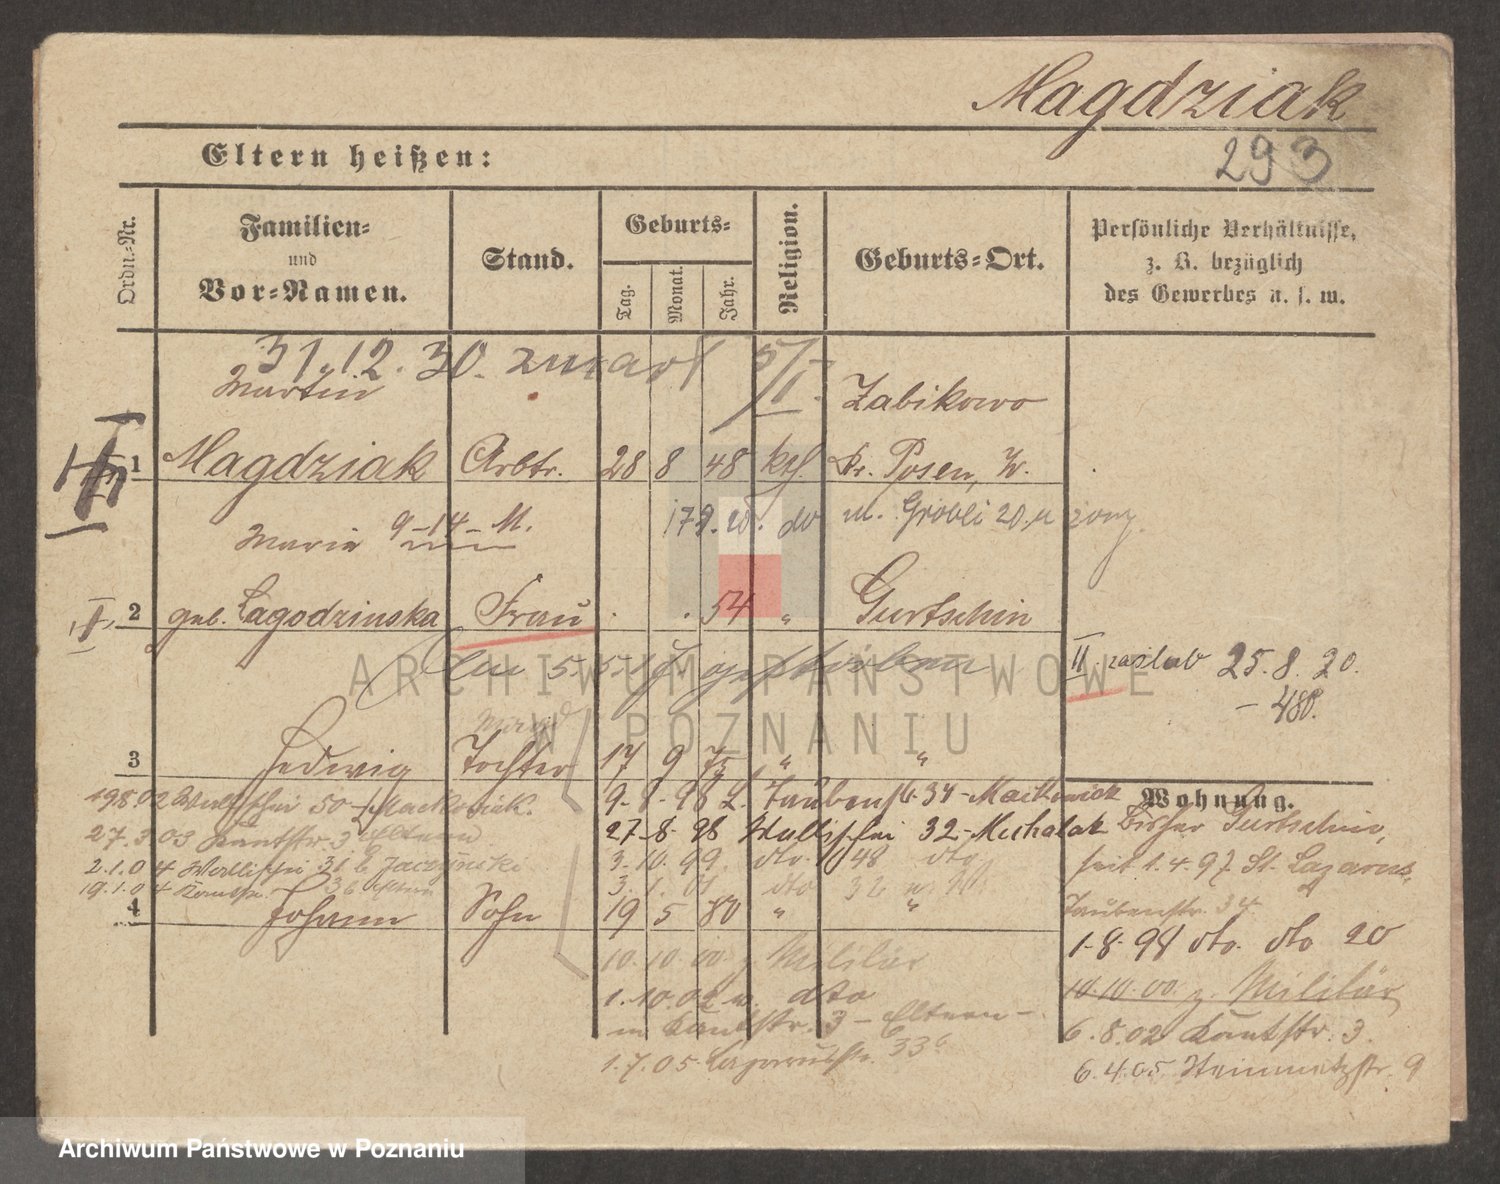 Magdziak
293
Eltern heißen:
Ordn.-Nr.
Familien-
und
Vor-Namen.
Stand.
Geburts-
Tag.
Monat.
Jahr.
Religion.
Geburts-Ort.
Persönliche Verhältnisse,
z. B. bezüglich
des Gewerbes u. s. w.
31.12.30. zmarł
Martin
Zabikowo
1 Magdziak Arbtr. 28 8 48 kth. Kr. Posen, W.
9-14- M.
Maria
m. Grobli 20
II
2 geb. Lagodzinska Frau 54 " Gurtschin
gestorben
II zaślub 25.8.20.
- 480.
3 Hedwig Tochter 17 9 75 " "
9-8-98 z. Taubenstr. 34-Maćkowiak
Wohnung.
19.8.02 Wallischei 50-Maćkowiak.
27-8-98 Wallischei 32-Michalak
bisher Gurtschin,
27.3.03 Kantstr. 3 Eltern
3.10.99. dto. 48 dto
seit 1.4.97 St. Lazarus,
2.1.04 Wallischei
3.1.01 dto
Taubenstr. 34
19.1.04 Kantstr. 3 Eltern
4 Johann Sohn 19 5 80 " "
1-8-98 dto. dto 20
10.10.00 z. Militär
10.10.00 z. Militär
1.10.02 v. dto
in Kantstr. 3 - Eltern -
6.8.02 Kantstr. 3.
1.7.05 Lazarusstr. 33
6.4.05 Steinmetzstr. 9
ARCHIWUM PAŃSTWOWE
W POZNANIU
Archiwum Państwowe w Poznaniu